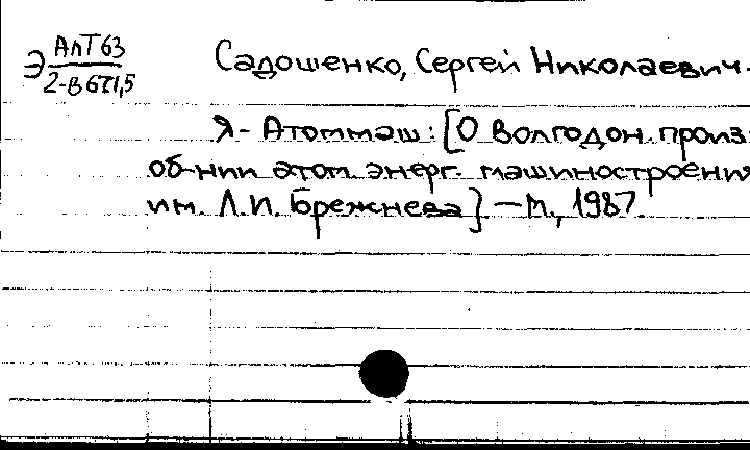 Э АлТ63
2-в6Т1,5
Садошенко, Сергей Николаевич.
Я - Атоммаш: [О Волгодон. произ.
об-нии атом. энерг. машиностроения
им. Л.И. Брежнева] - М., 1987.